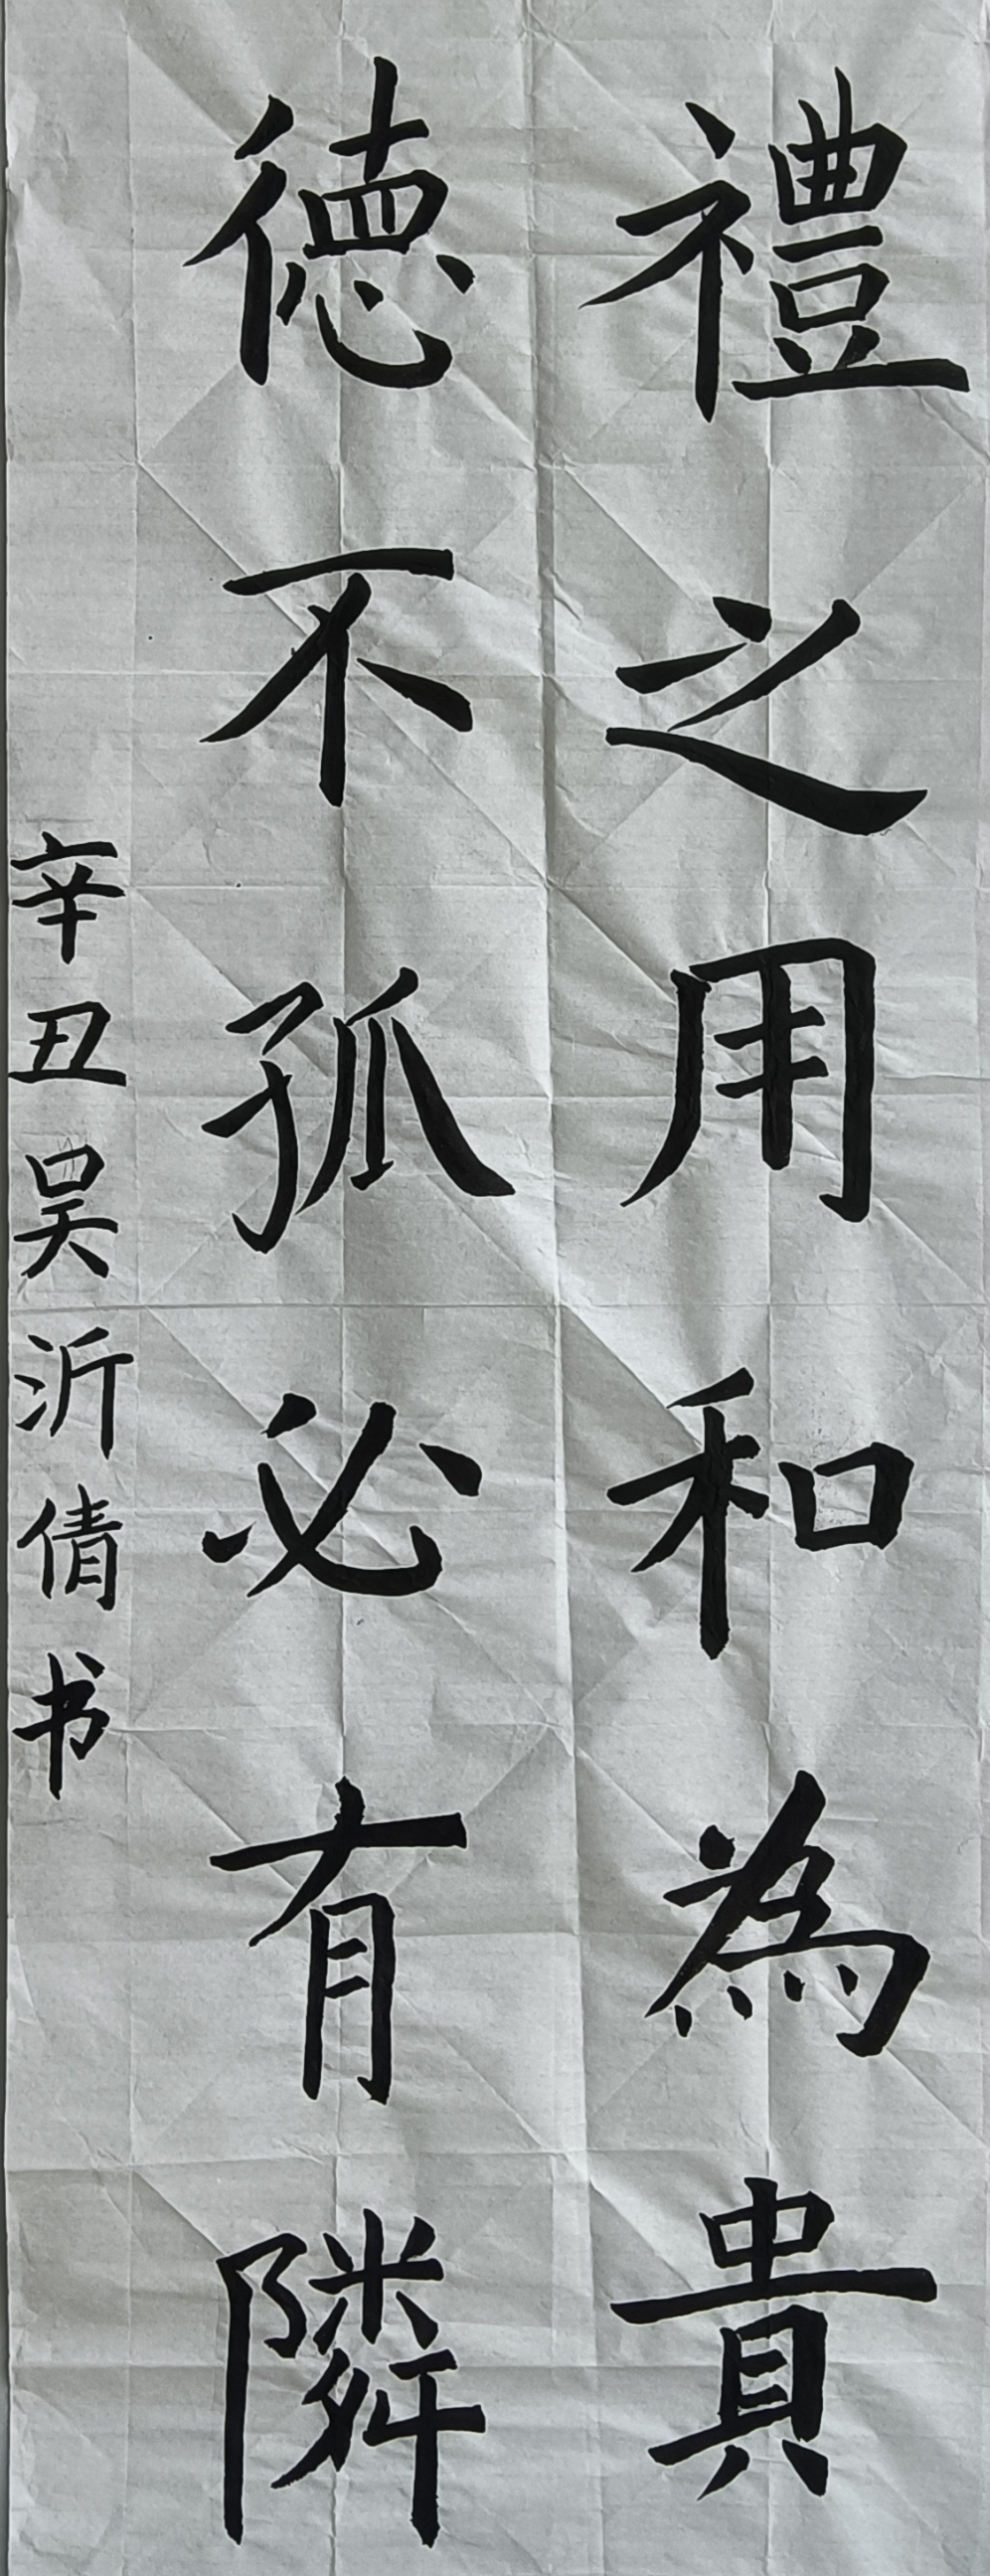 禮之用和為貴
德不孤必有隣
辛丑吴沂倩书